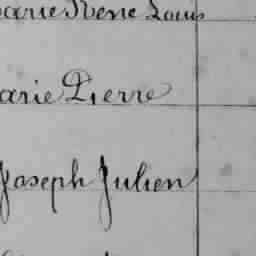 arie René Louis
arie Pierre
Joseph Julien